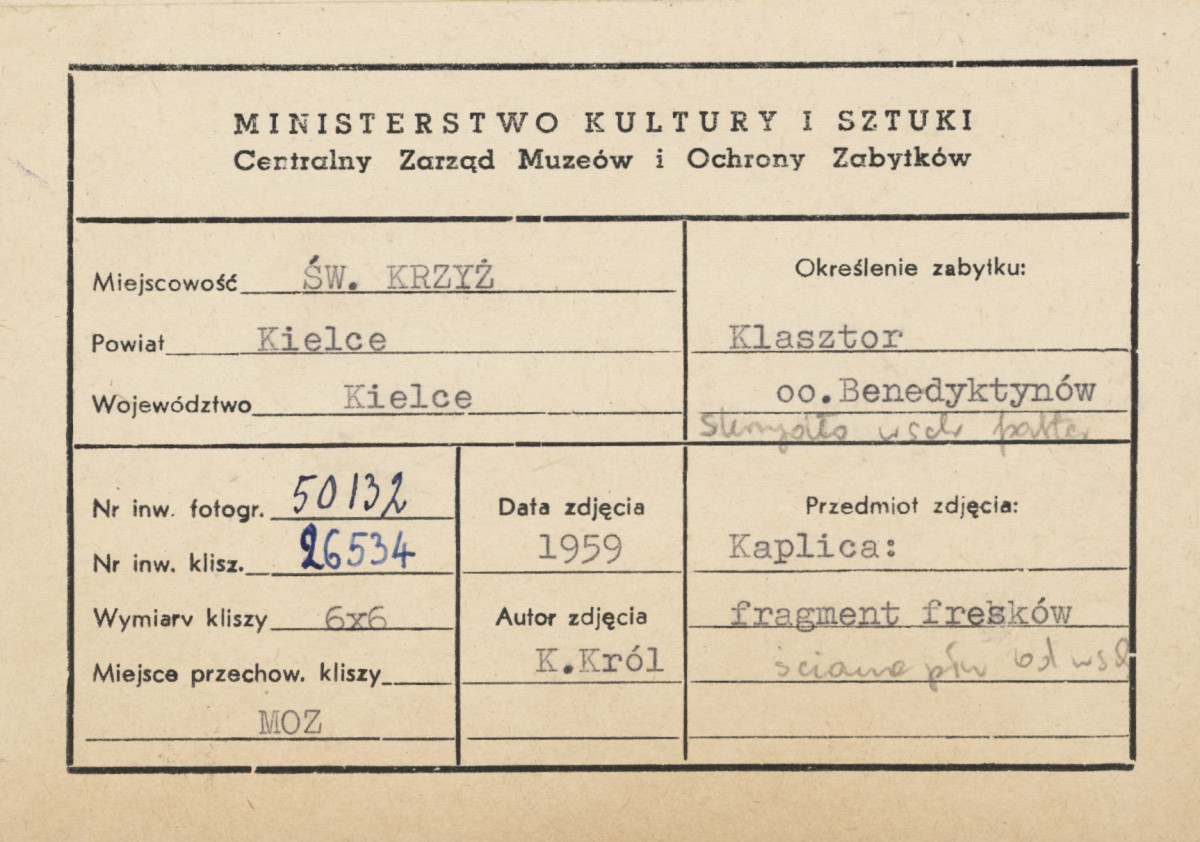 MINISTERSTWO KULTURY I SZTUKI
Centralny Zarząd Muzeów i Ochrony Zabytków
Miejscowość ŚW. KRZYŻ
Powiat Kielce
Województwo Kielce
Określenie zabytku:
Klasztor
oo.Benedyktynów
skrzydło wsch parter
Nr inw. fotogr. 50132
Nr inw. klisz. 26534
Wymiary kliszy 6x6
Miejsce przechow. kliszy
MOZ
Data zdjęcia
1959
Autor zdjęcia
K.Król
Przedmiot zdjęcia:
Kaplica:
fragment fresków
ściana płn od wsch